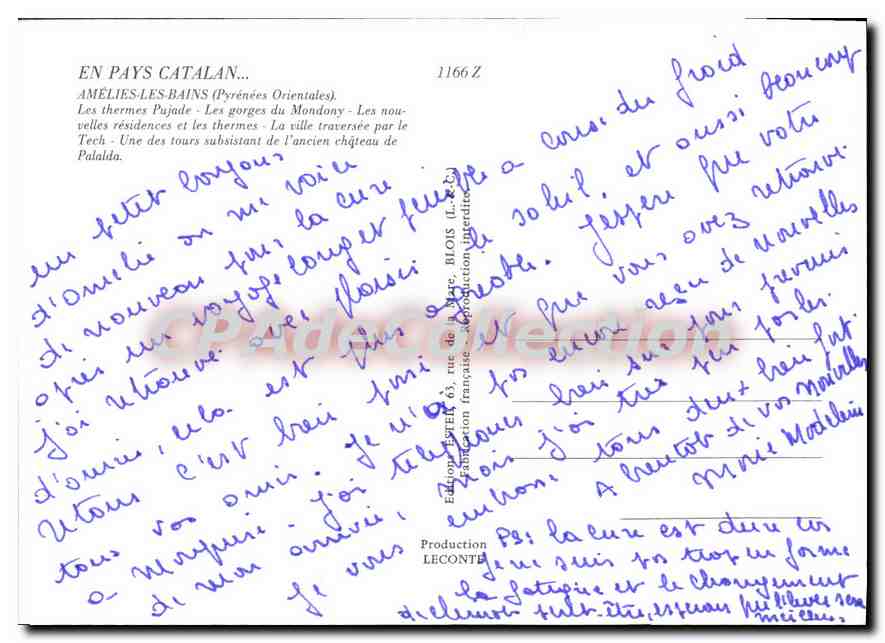 EN PAYS CATALAN...
1166 Z
AMÉLIES-LES-BAINS (Pyrénées Orientales).
Les thermes Pujade - Les gorges du Mondony - Les nou-
velles résidences et les thermes - La ville traversée par le
Tech - Une des tours subsistant de l'ancien château de
Palalda.
un petit bonjour
d'amélie on me voici
de nouveau pour la cure.
après un voyage long et a cause du froid
j'ai retrouvé avec plaisir le soleil, et aussi beaucoup
d'amis, cela est plus agréable. J'espère que votre
c'est bien passé et que vous avez retrouvé
tous vos amis. Je n'ai pas encore reçu de nouvelles
j'ai téléphoné bien sur pour prévenir
de mon arrivée, mais j'ai très peu parler.
Je vous embrasse tous deux bien fort.
A bientot de vos nouvelles
Marie Madeleine
PS: la cure est dure
je ne suis pas trop en forme
la fatigue et le changement
de climat peut-être, espérons
Editions ESTEL, 63, rue de la Mare, BLOIS (L.-&-C.)
Fabrication française - Reproduction interdite
Production
LECONTE
CPAdeCollection